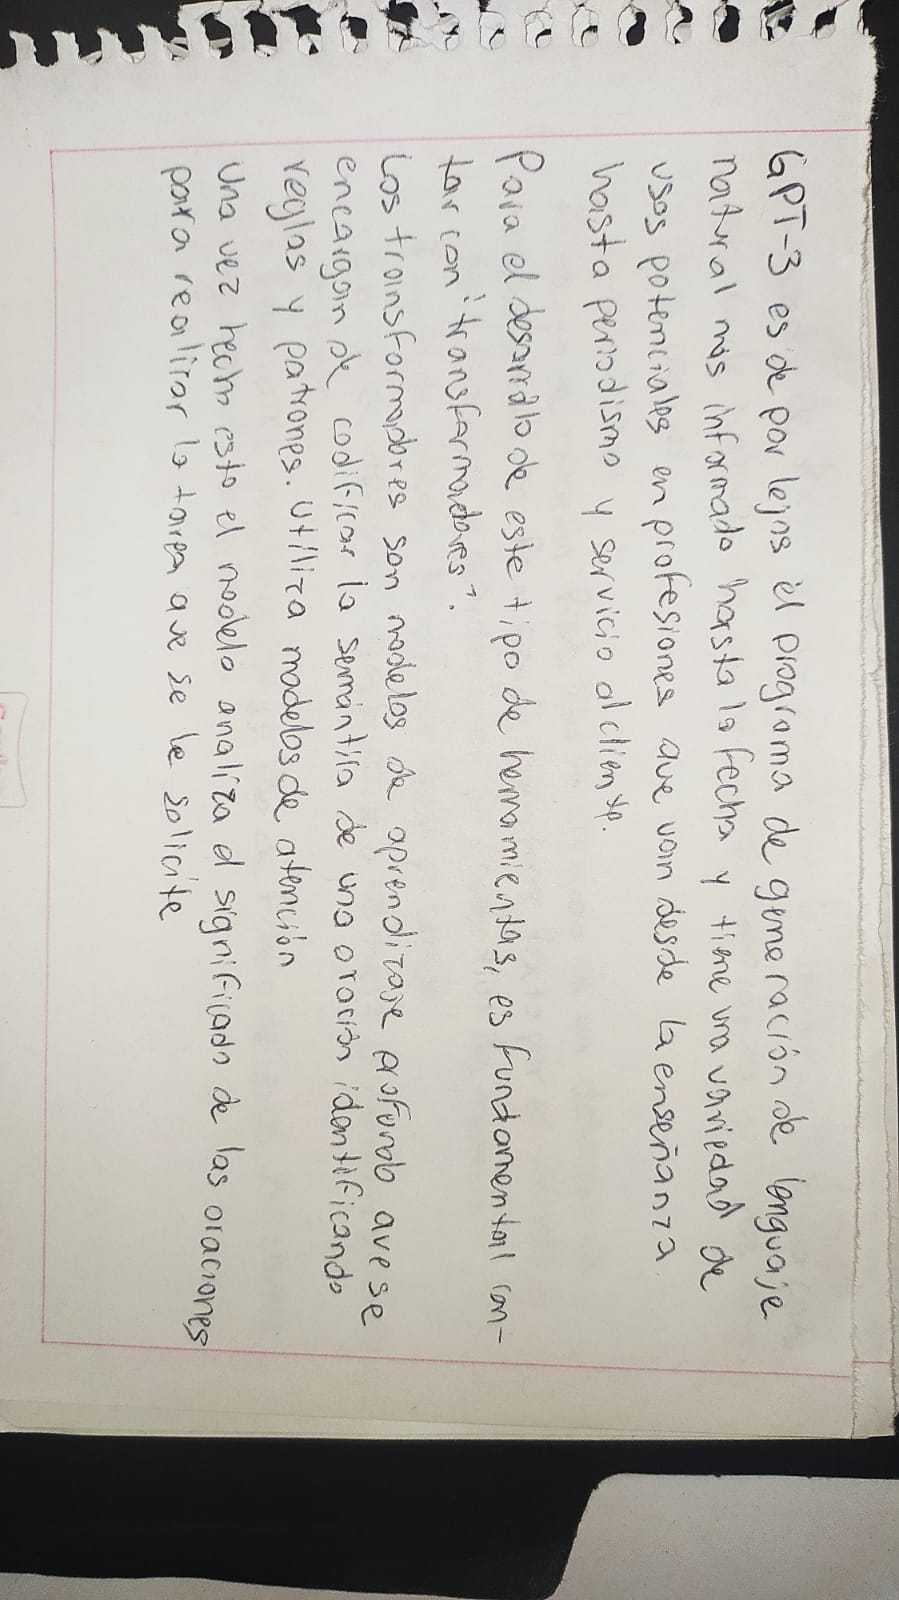 GPT-3 es de por lejos el programa de generación de lenguaje
natural más informado hasta la fecha y tiene una variedad de
usos potenciales en profesiones que van desde la enseñanza
hasta periodismo y servicio al cliente.
Para el desarrollo de este tipo de herramientas, es fundamental con-
tar con "transformadores".
Los transformadores son modelos de aprendizaje profundo que se
encargan de codificar la semántica de una oración identificando
reglas y patrones. Utiliza modelos de atención
Una vez hecho esto el modelo analiza el significado de las oraciones
para realizar la tarea que se le solicite